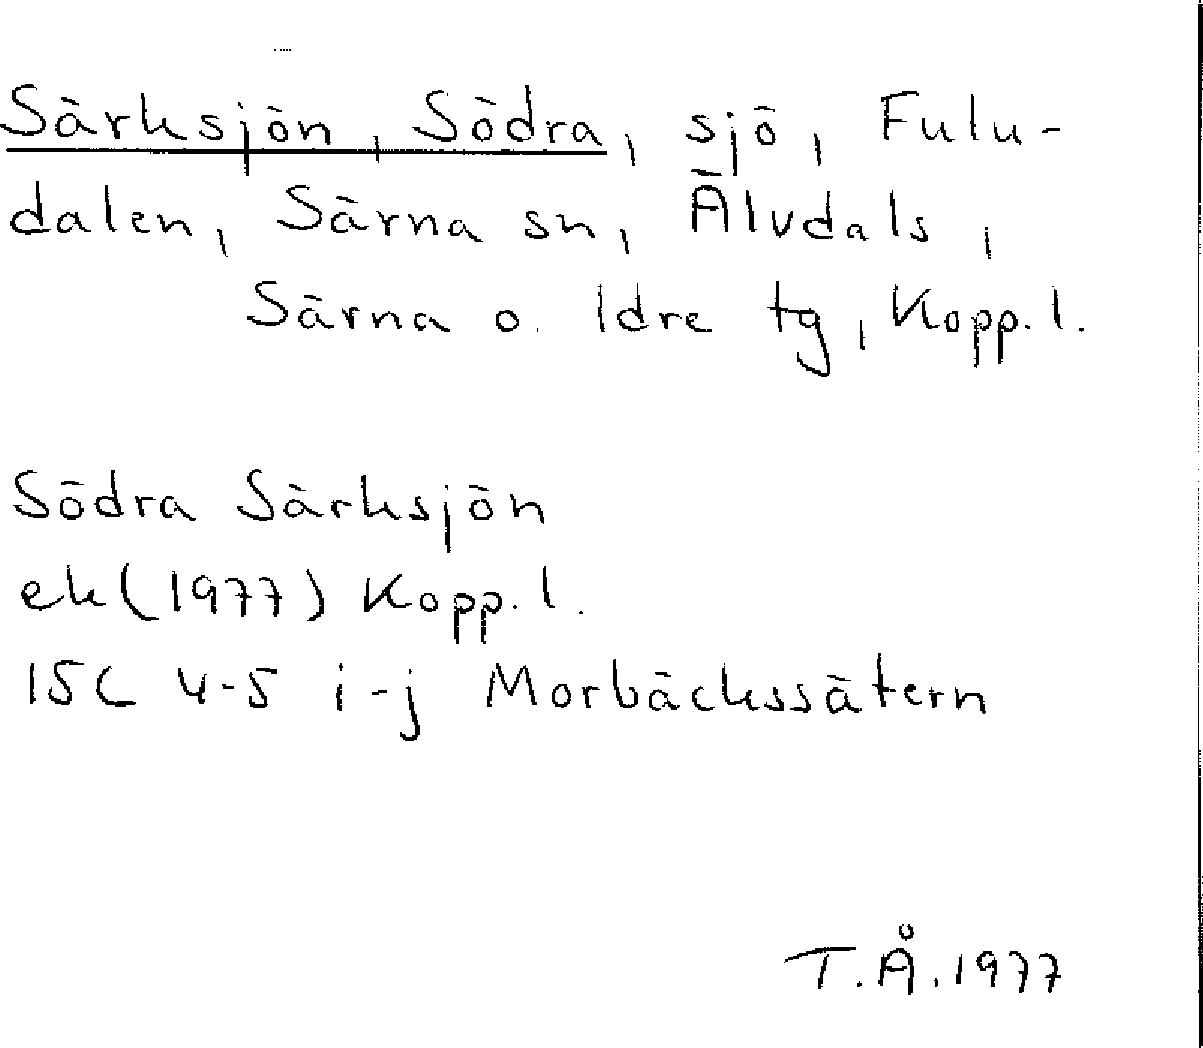 Särksjön, Södra, sjö, Fulu-
dalen, Särna sn, Älvdals,
Särna o. Idre tg, Kopp. l.
Södra Särksjön
ek (1977) Kopp. l.
15C 4-5 i-j Morbäckssätern
T.Å. 1977